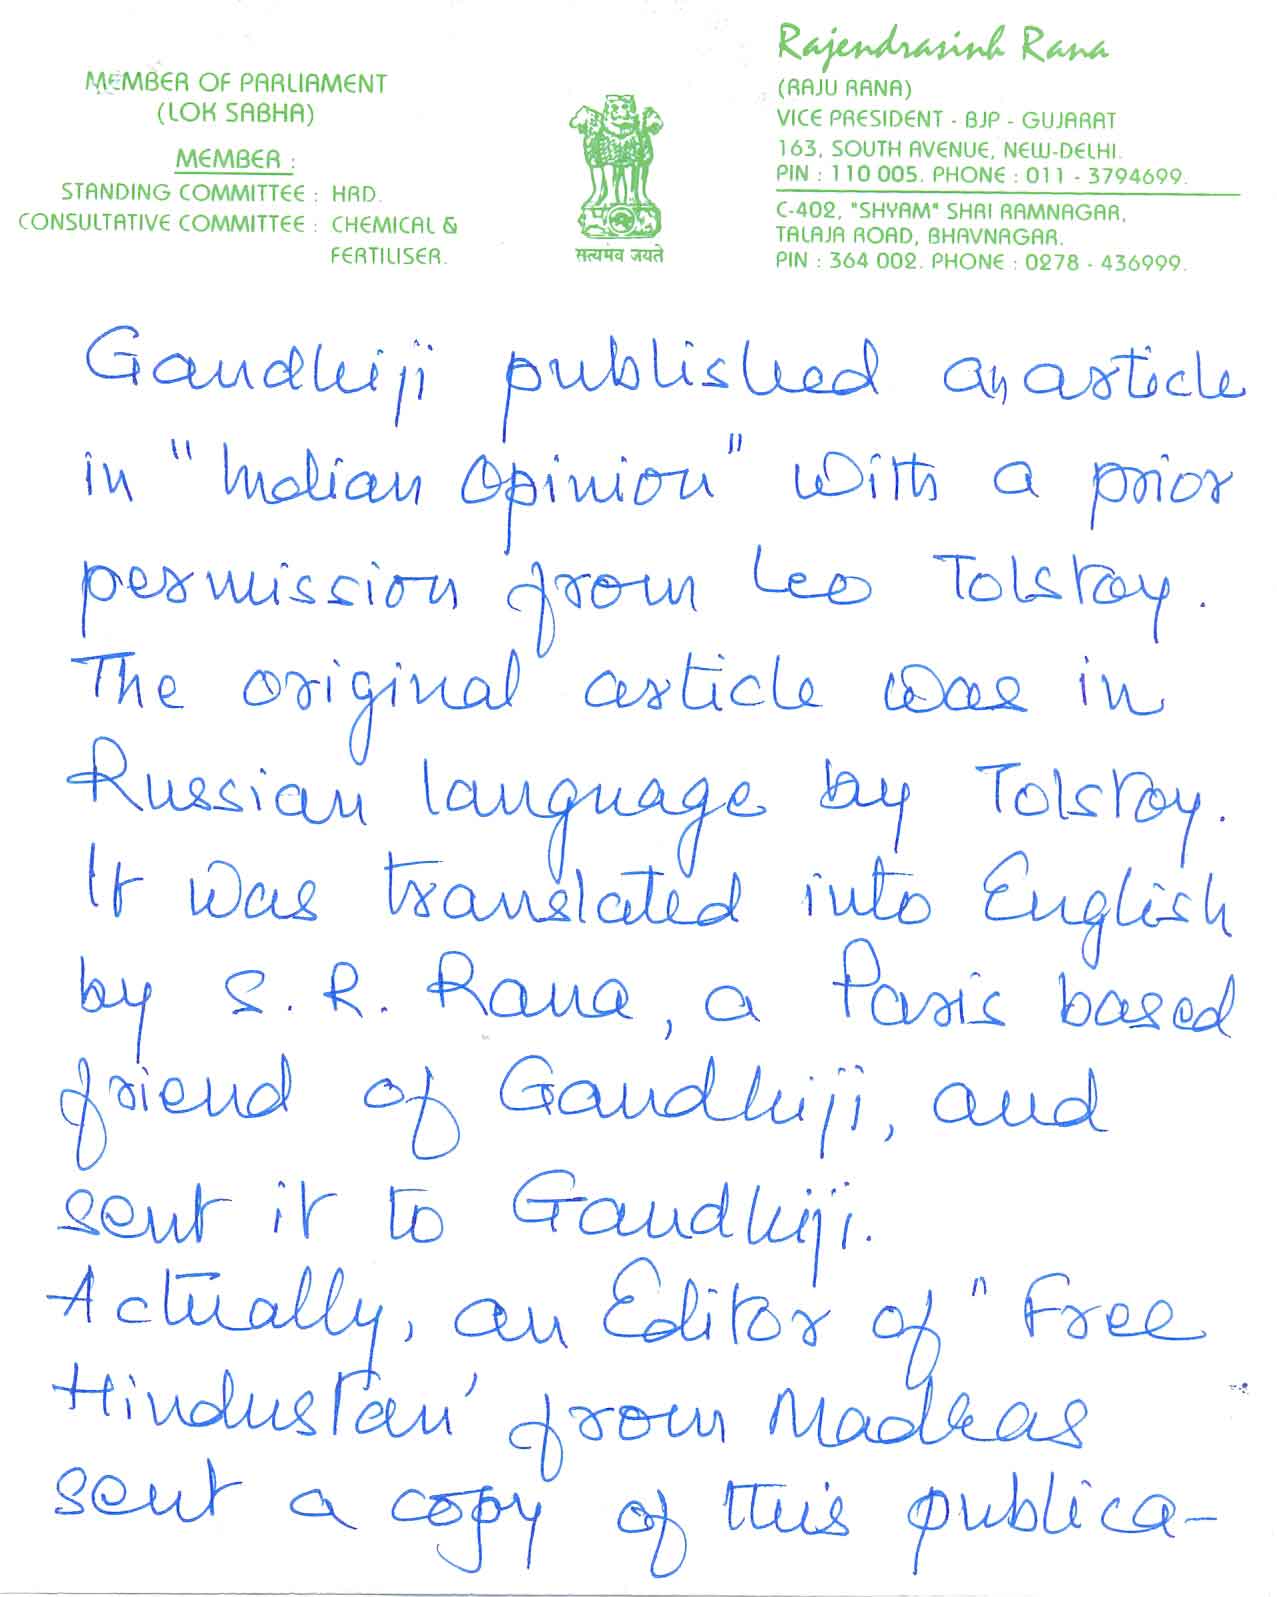 Rajendrasinh Rana
(RAJU RANA)
VICE PRESIDENT - BJP - GUJARAT
163, SOUTH AVENUE, NEW-DELHI.
PIN : 110 005. PHONE : 011 - 3794699.
C-402, "SHYAM" SHRI RAMNAGAR,
TALAJA ROAD, BHAVNAGAR.
PIN : 364 002. PHONE : 0278 - 436999.
MEMBER OF PARLIAMENT
(LOK SABHA)
MEMBER :
STANDING COMMITTEE : HRD.
CONSULTATIVE COMMITTEE : CHEMICAL &
FERTILISER.
सत्यमेव जयते
Gandhiji published an article
in "Indian Opinion" with a prior
permission from Leo Tolstoy.
The original article was in
Russian language by Tolstoy.
It was translated into English
by S. R. Rana, a Paris based
friend of Gandhiji, and
sent it to Gandhiji.
Actually, an Editor of "Free
Hindustan' from Madras
sent a copy of this publica-